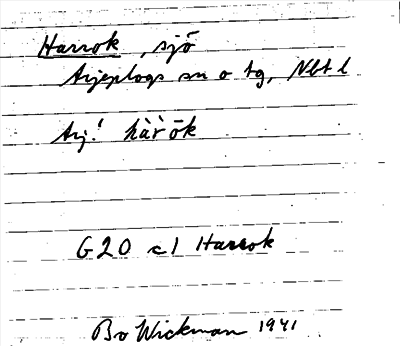 Harrok, sjö
Arjeplogs sn o tg, Nbt l
Arj! hàr̀ōk
G20 c1 Harrok
Bo Wickman 1941